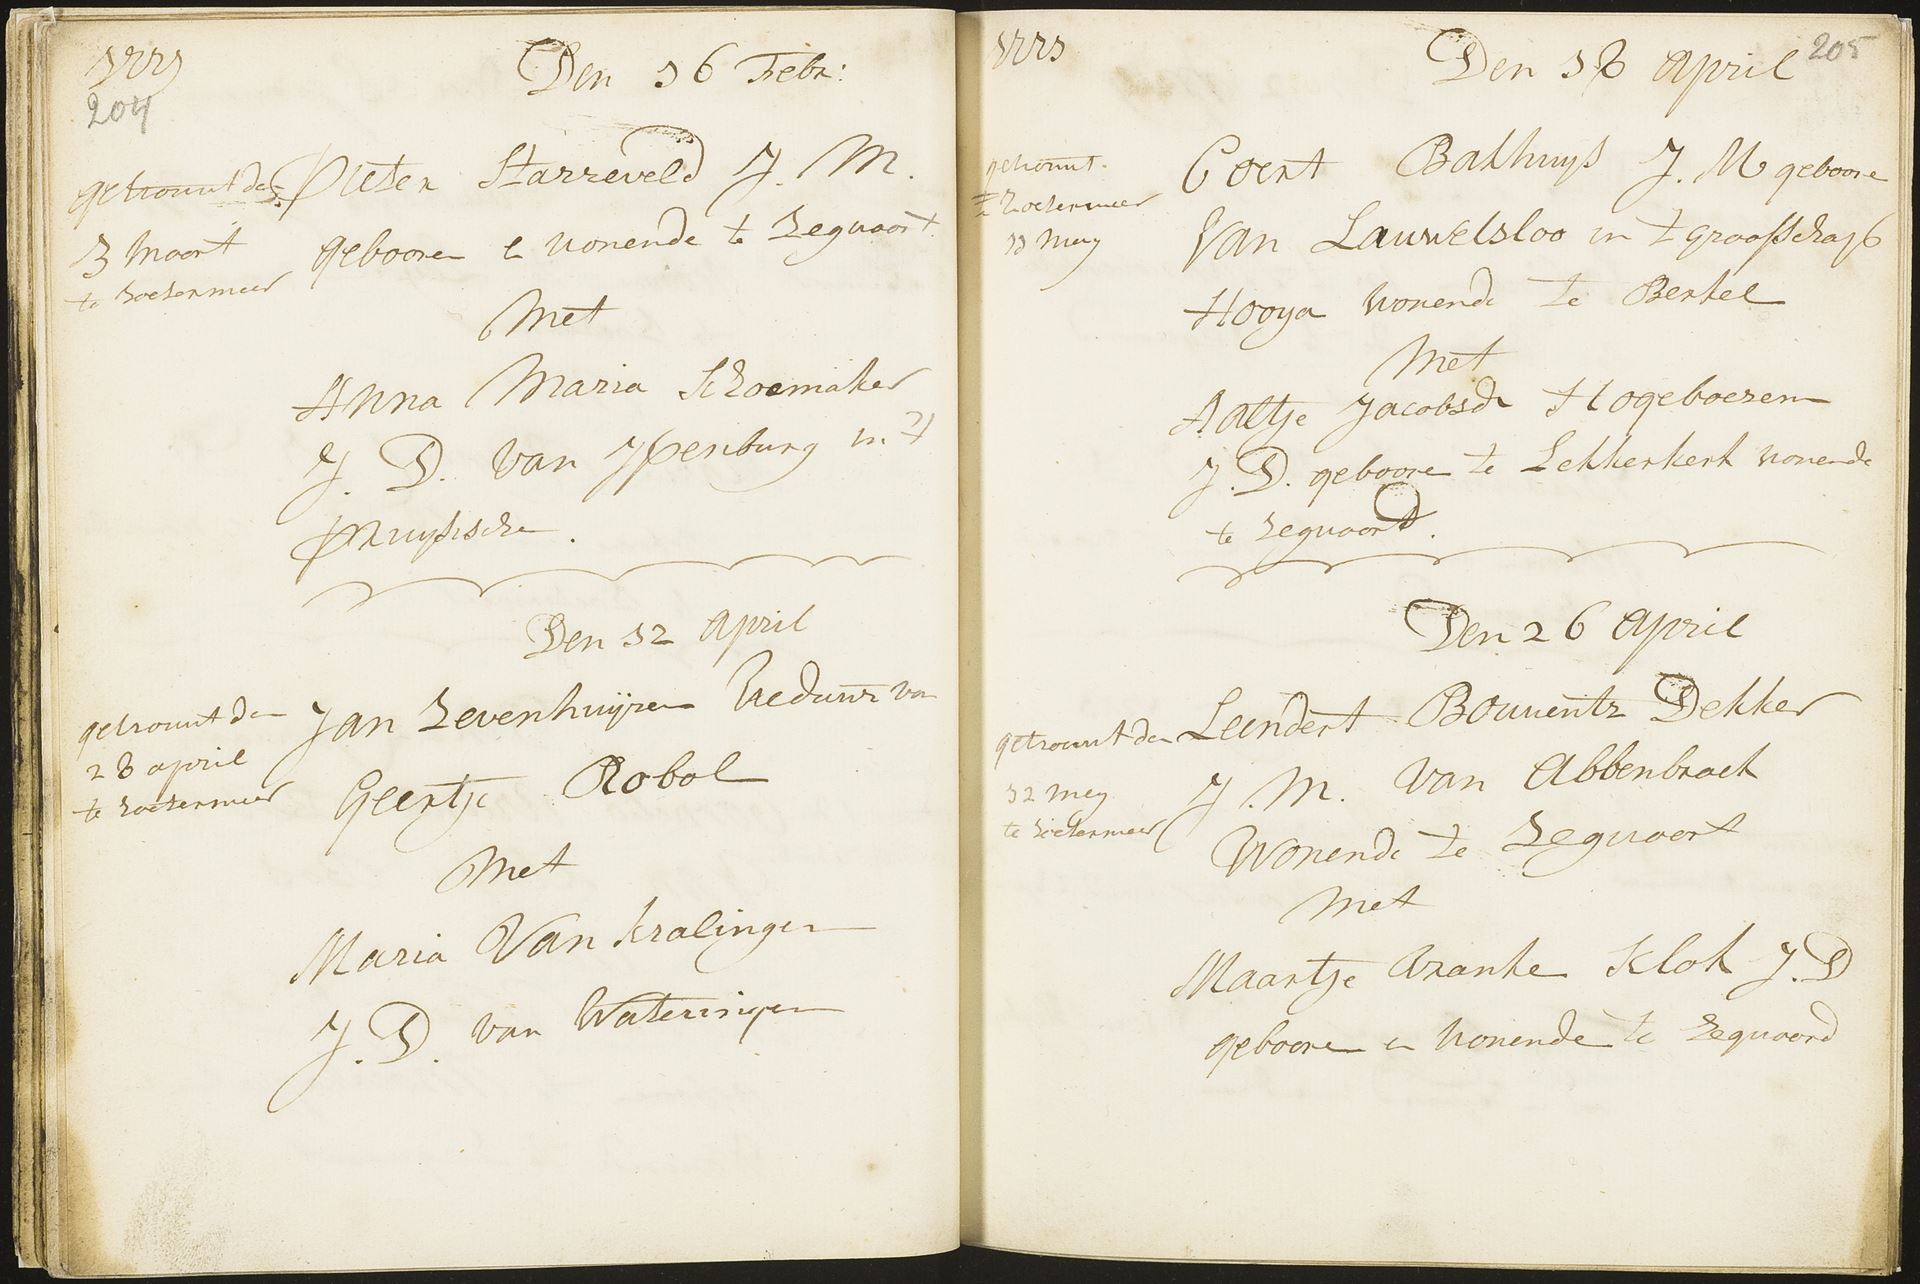 1771
204
Den 16 Febr:
getrouwt den
3 Maart
te Soetermeer
Pieter Starreveld J. M.
geboore en wonende te Zegwaart
Met
Anna Maria Schoemaker
J. D. van Ysenburg in 't
Pruysische.
Den 12 April
getrouwt den
28 april
te Soetermeer
Jan Zevenhuijzen Weduwr van
Geertje Robol
Met
Maria Van Kralingen
J. D. van Wateringen
1771
205
Den 18 April
getrouwt
te Zoetermeer
11 Mey
Coert Bakhuys J. M geboore
Van Lauwelsloo in 't graafschap
Hooya wonende te Berkel
Met
Aaltje Jacobsde Hogeboezem
J. D. geboore te Lekkerkerk wonende
te Zegwaard.
Den 26 April
getrouwt den
12 Mey
te Soetermeer
Leendert Bouwentz Dekker
J. M. Van Abbenbroek
Wonende te Zegwaart
Met
Maartje Vranke Klok J. D
geboore en wonende te Zegwaard